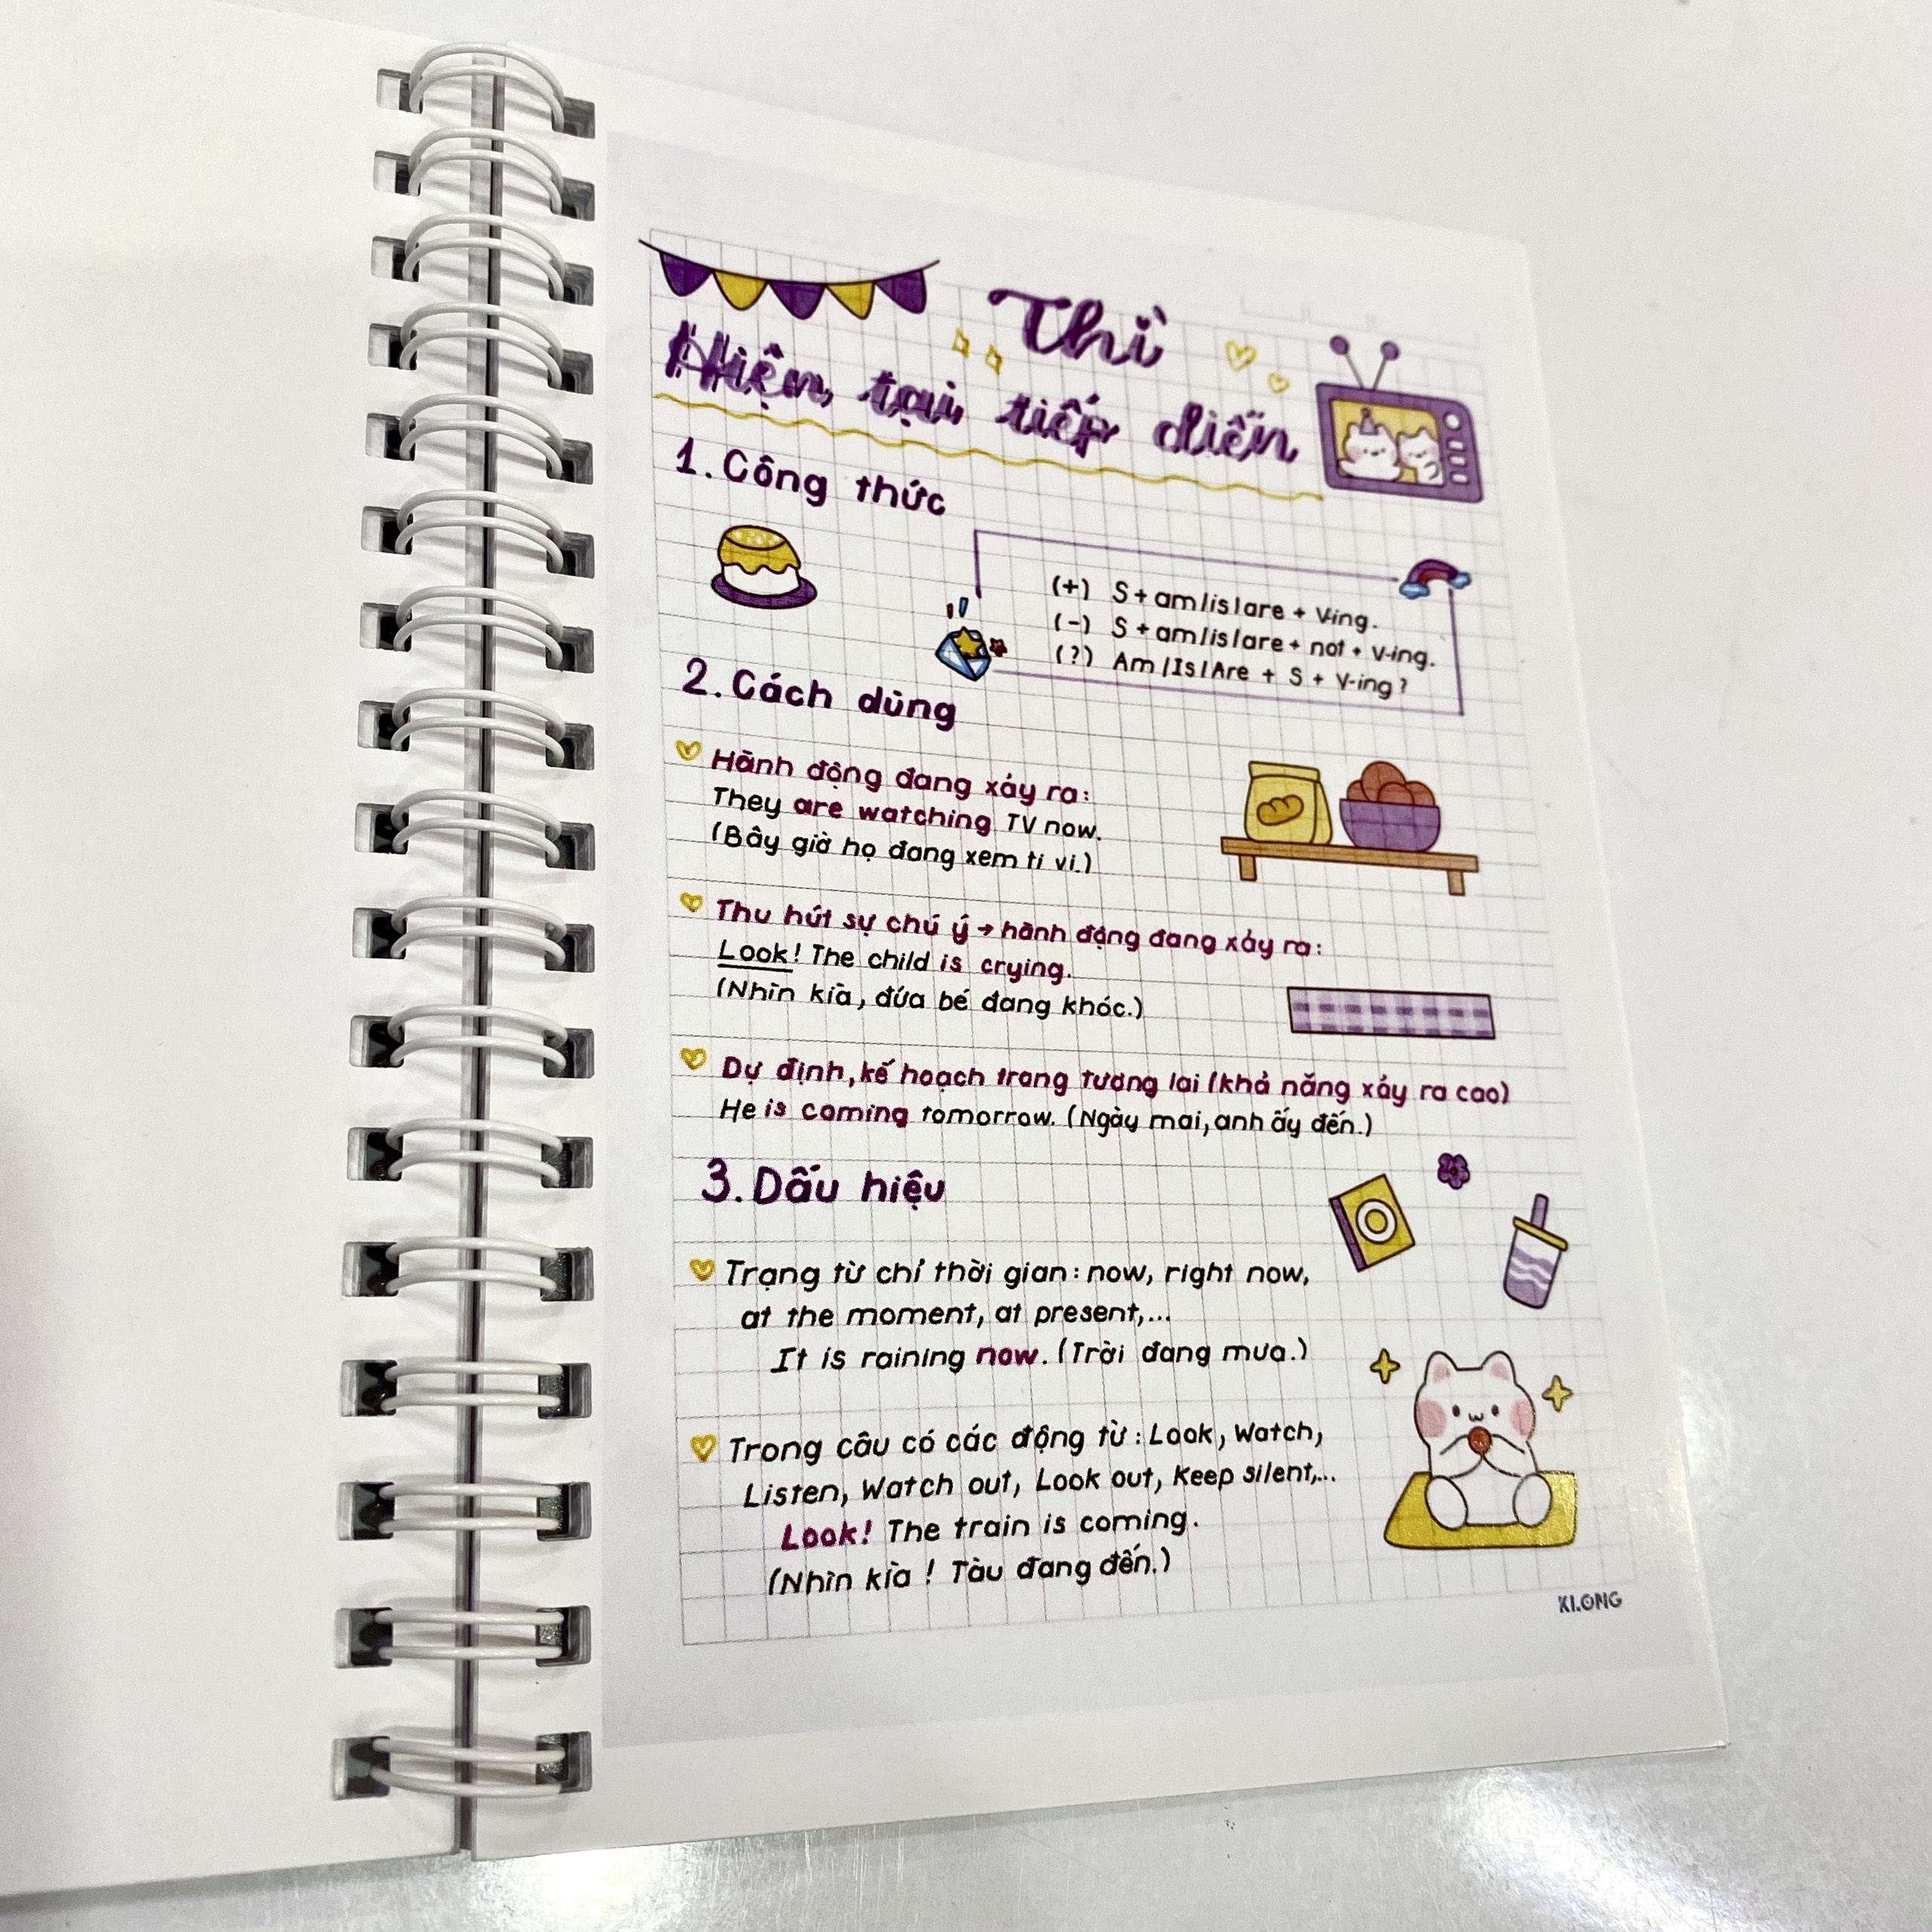 Thì
Hiện tại tiếp diễn
1. Công thức
(+) S + am/is/are + V-ing.
(-) S + am/is/are + not + V-ing.
(?) Am/Is/Are + S + V-ing?
2. Cách dùng
Hành động đang xảy ra:
They are watching TV now.
(Bây giờ họ đang xem ti vi.)
Thu hút sự chú ý → hành động đang xảy ra:
Look! The child is crying.
(Nhìn kìa, đứa bé đang khóc.)
Dự định, kế hoạch trong tương lai (khả năng xảy ra cao)
He is coming tomorrow. (Ngày mai, anh ấy đến.)
3. Dấu hiệu
Trạng từ chỉ thời gian: now, right now,
at the moment, at present,...
It is raining now. (Trời đang mưa.)
Trong câu có các động từ: Look, Watch,
Listen, Watch out, Look out, Keep silent,...
Look! The train is coming.
(Nhìn kìa! Tàu đang đến.)
KLONG